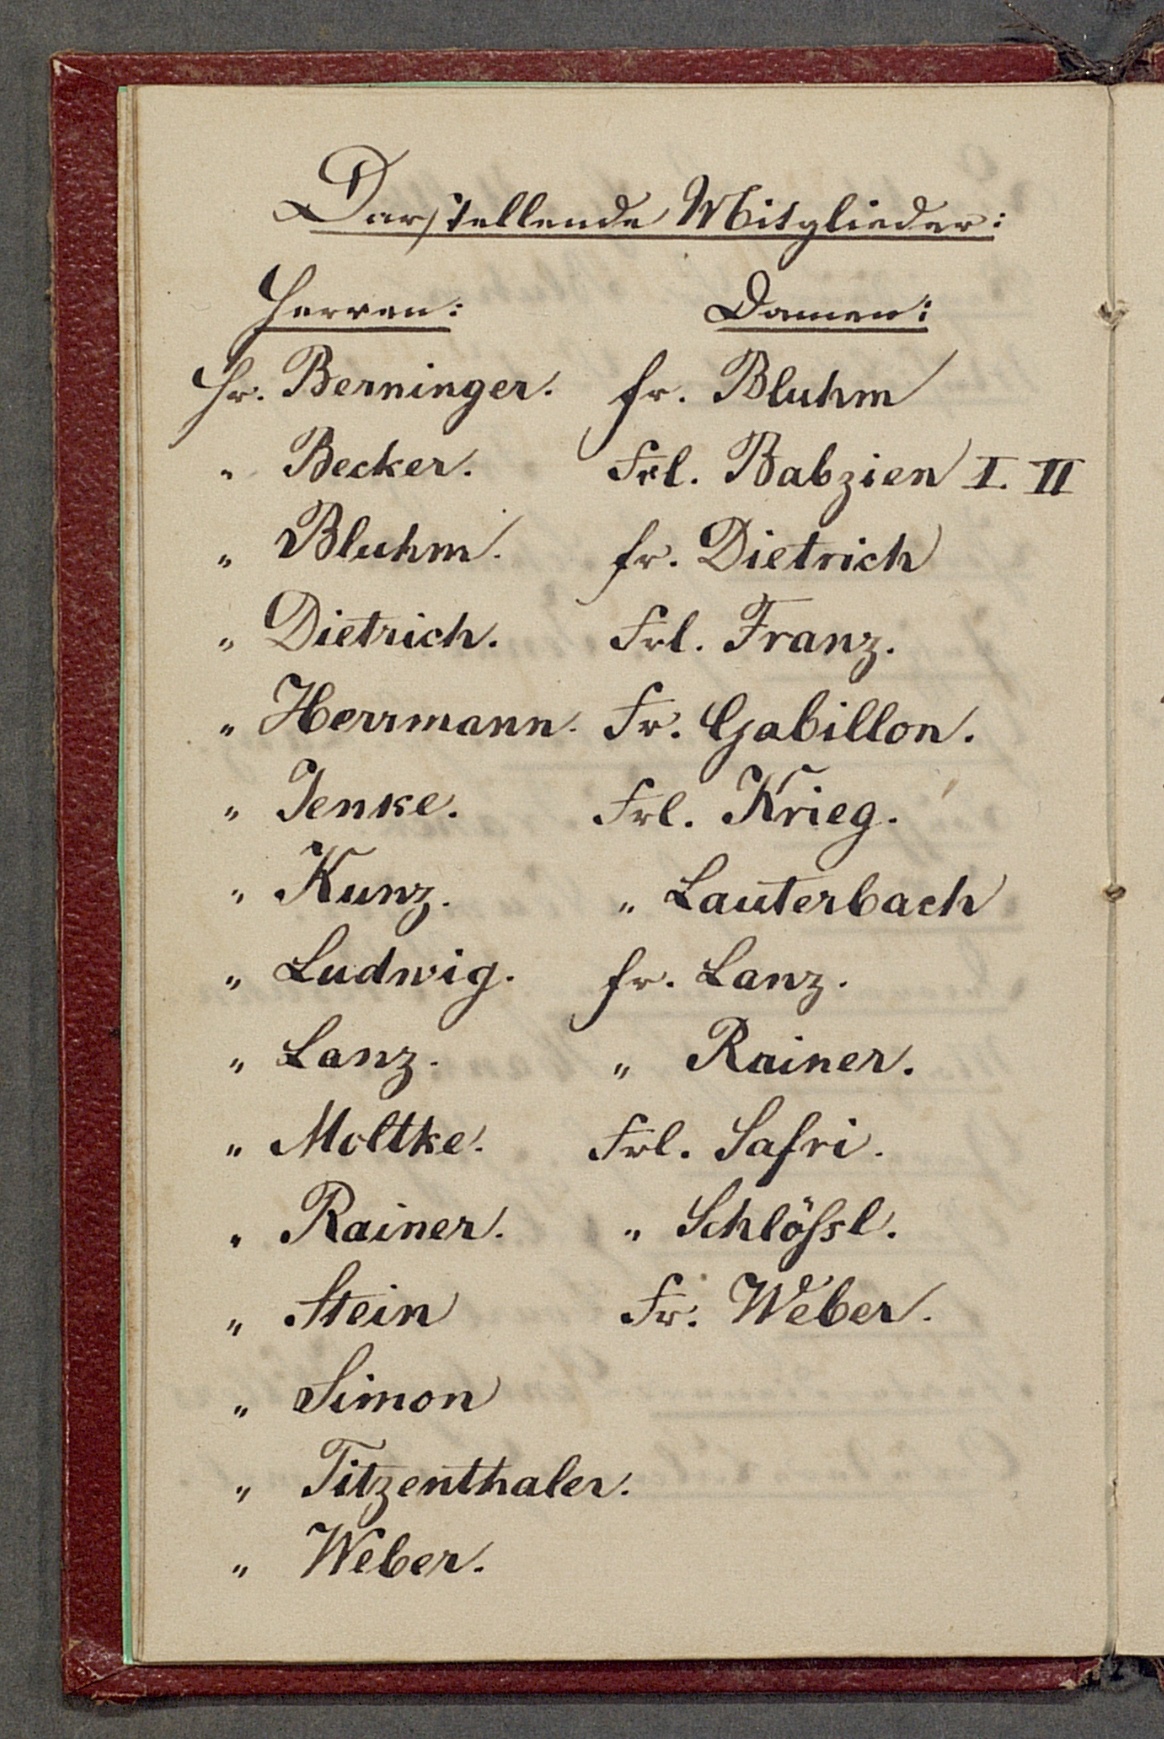 Darstellende Mitglieder:
Herren: Damen:
Hr. Berninger. Fr. Bluhm
" Becker. Frl. Babzien I. II
" Bluhm. Fr. Dietrich
" Dietrich. Frl. Franz.
" Herrmann. Fr. Gabillon.
" Jenke. Frl. Krieg.
" Kunz. " Lauterbach
" Ludwig. Fr. Lanz.
" Lanz. " Rainer.
" Moltke. Frl. Safri.
" Rainer. " Schlößl.
" Stein Fr. Weber.
" Simon
" Titzenthaler.
" Weber.